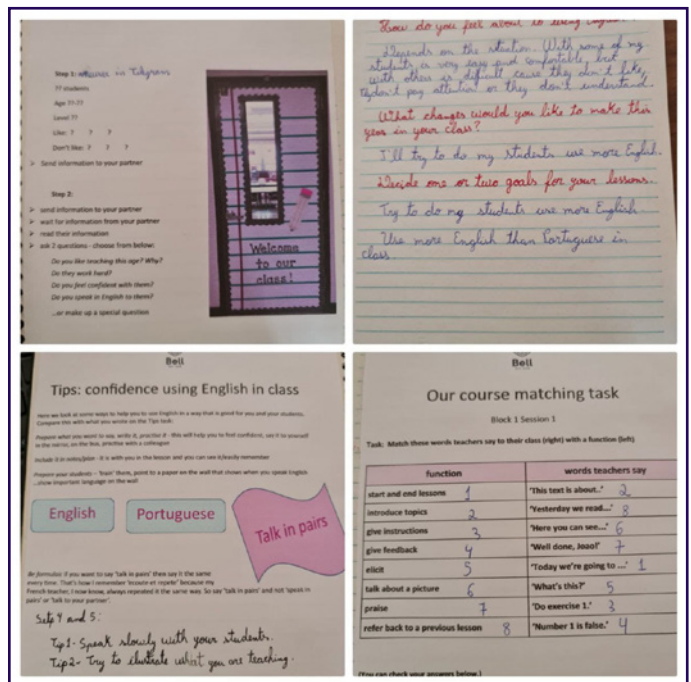 Step 1: answer in Telegram
?? students
Age ??-??
Level ??
Like: ? ? ?
Don't like: ? ? ?
➢ Send information to your partner
Step 2:
➢ send information to your partner
➢ wait for information from your partner
➢ read their information
➢ ask 2 questions - choose from below:
Do you like teaching this age? Why?
Do they work hard?
Do you feel confident with them?
Do you speak in English to them?
...or make up a special question
Welcome
to our
class!
How do you feel about
Depends on the situation. With some of my
students is very easy and comfortable, but
with others is difficult cause they don't like,
don't pay attention or they don't understand.
What changes would you like to make this
year in your class?
I'll try to do my students use more English.
Decide one or two goals for your lessons.
Try to do my students use more English.
Use more English than Portuguese in
class.
Bell
Tips: confidence using English in class
Here we look at some ways to help you to use English in a way that is good for you and your students.
Compare this with what you wrote on the Tips task:
Prepare what you want to say, write it, practise it - this will help you to feel confident, say it to yourself
in the mirror, on the bus, practise with a colleague
Include it in notes/plan - it is with you in the lesson and you can see it/easily remember
Prepare your students – 'train' them, point to a paper on the wall that shows when you speak English
...show important language on the wall
English
Portuguese
Talk in pairs
Be formulaic if you want to say 'talk in pairs' then say it the same
every time. That's how I remember 'ecoute et repete' because my
French teacher, I now know, always repeated it the same way. So say 'talk in pairs' and not 'speak in
pairs' or 'talk to your partner'.
Setp 4 and 5:
Tip1- Speak slowly with your students.
Tip2- Try to ilustrate what you are teaching.
Bell
Our course matching task
Block 1 Session 1
Task: Match these words teachers say to their class (right) with a function (left)
function words teachers say
start and end lessons 1 'This text is about..' 2
introduce topics 2 'Yesterday we read...' 8
give instructions 3 'Here you can see...' 6
give feedback 4 'Well done, Joao!' 7
elicit 5 'Today we're going to ...' 1
talk about a picture 6 'What's this?' 5
praise 7 'Do exercise 1.' 3
refer back to a previous lesson 8 'Number 1 is false.' 4
(You can check your answers below.)